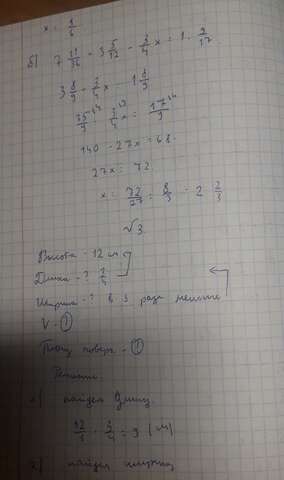 x = 1/6
б) 7 11/36 - 3 5/12 - 3/4 x = 1 · 9/17
3 8/9 - 3/4 x = 1 8/9
35/9 - 3/4 x = 17/9
140 - 27x = 68
27x = 72
x = 72/27 = 8/3 = 2 2/3
√3
Высота - 12 см
Длина - ? 3/4
Ширина - ? в 3 раза меньше
V - ?
Площ поверх - ?
Решение
1) найдем длину
12/1 · 3/4 = 9 (м)
2) найдем ширину